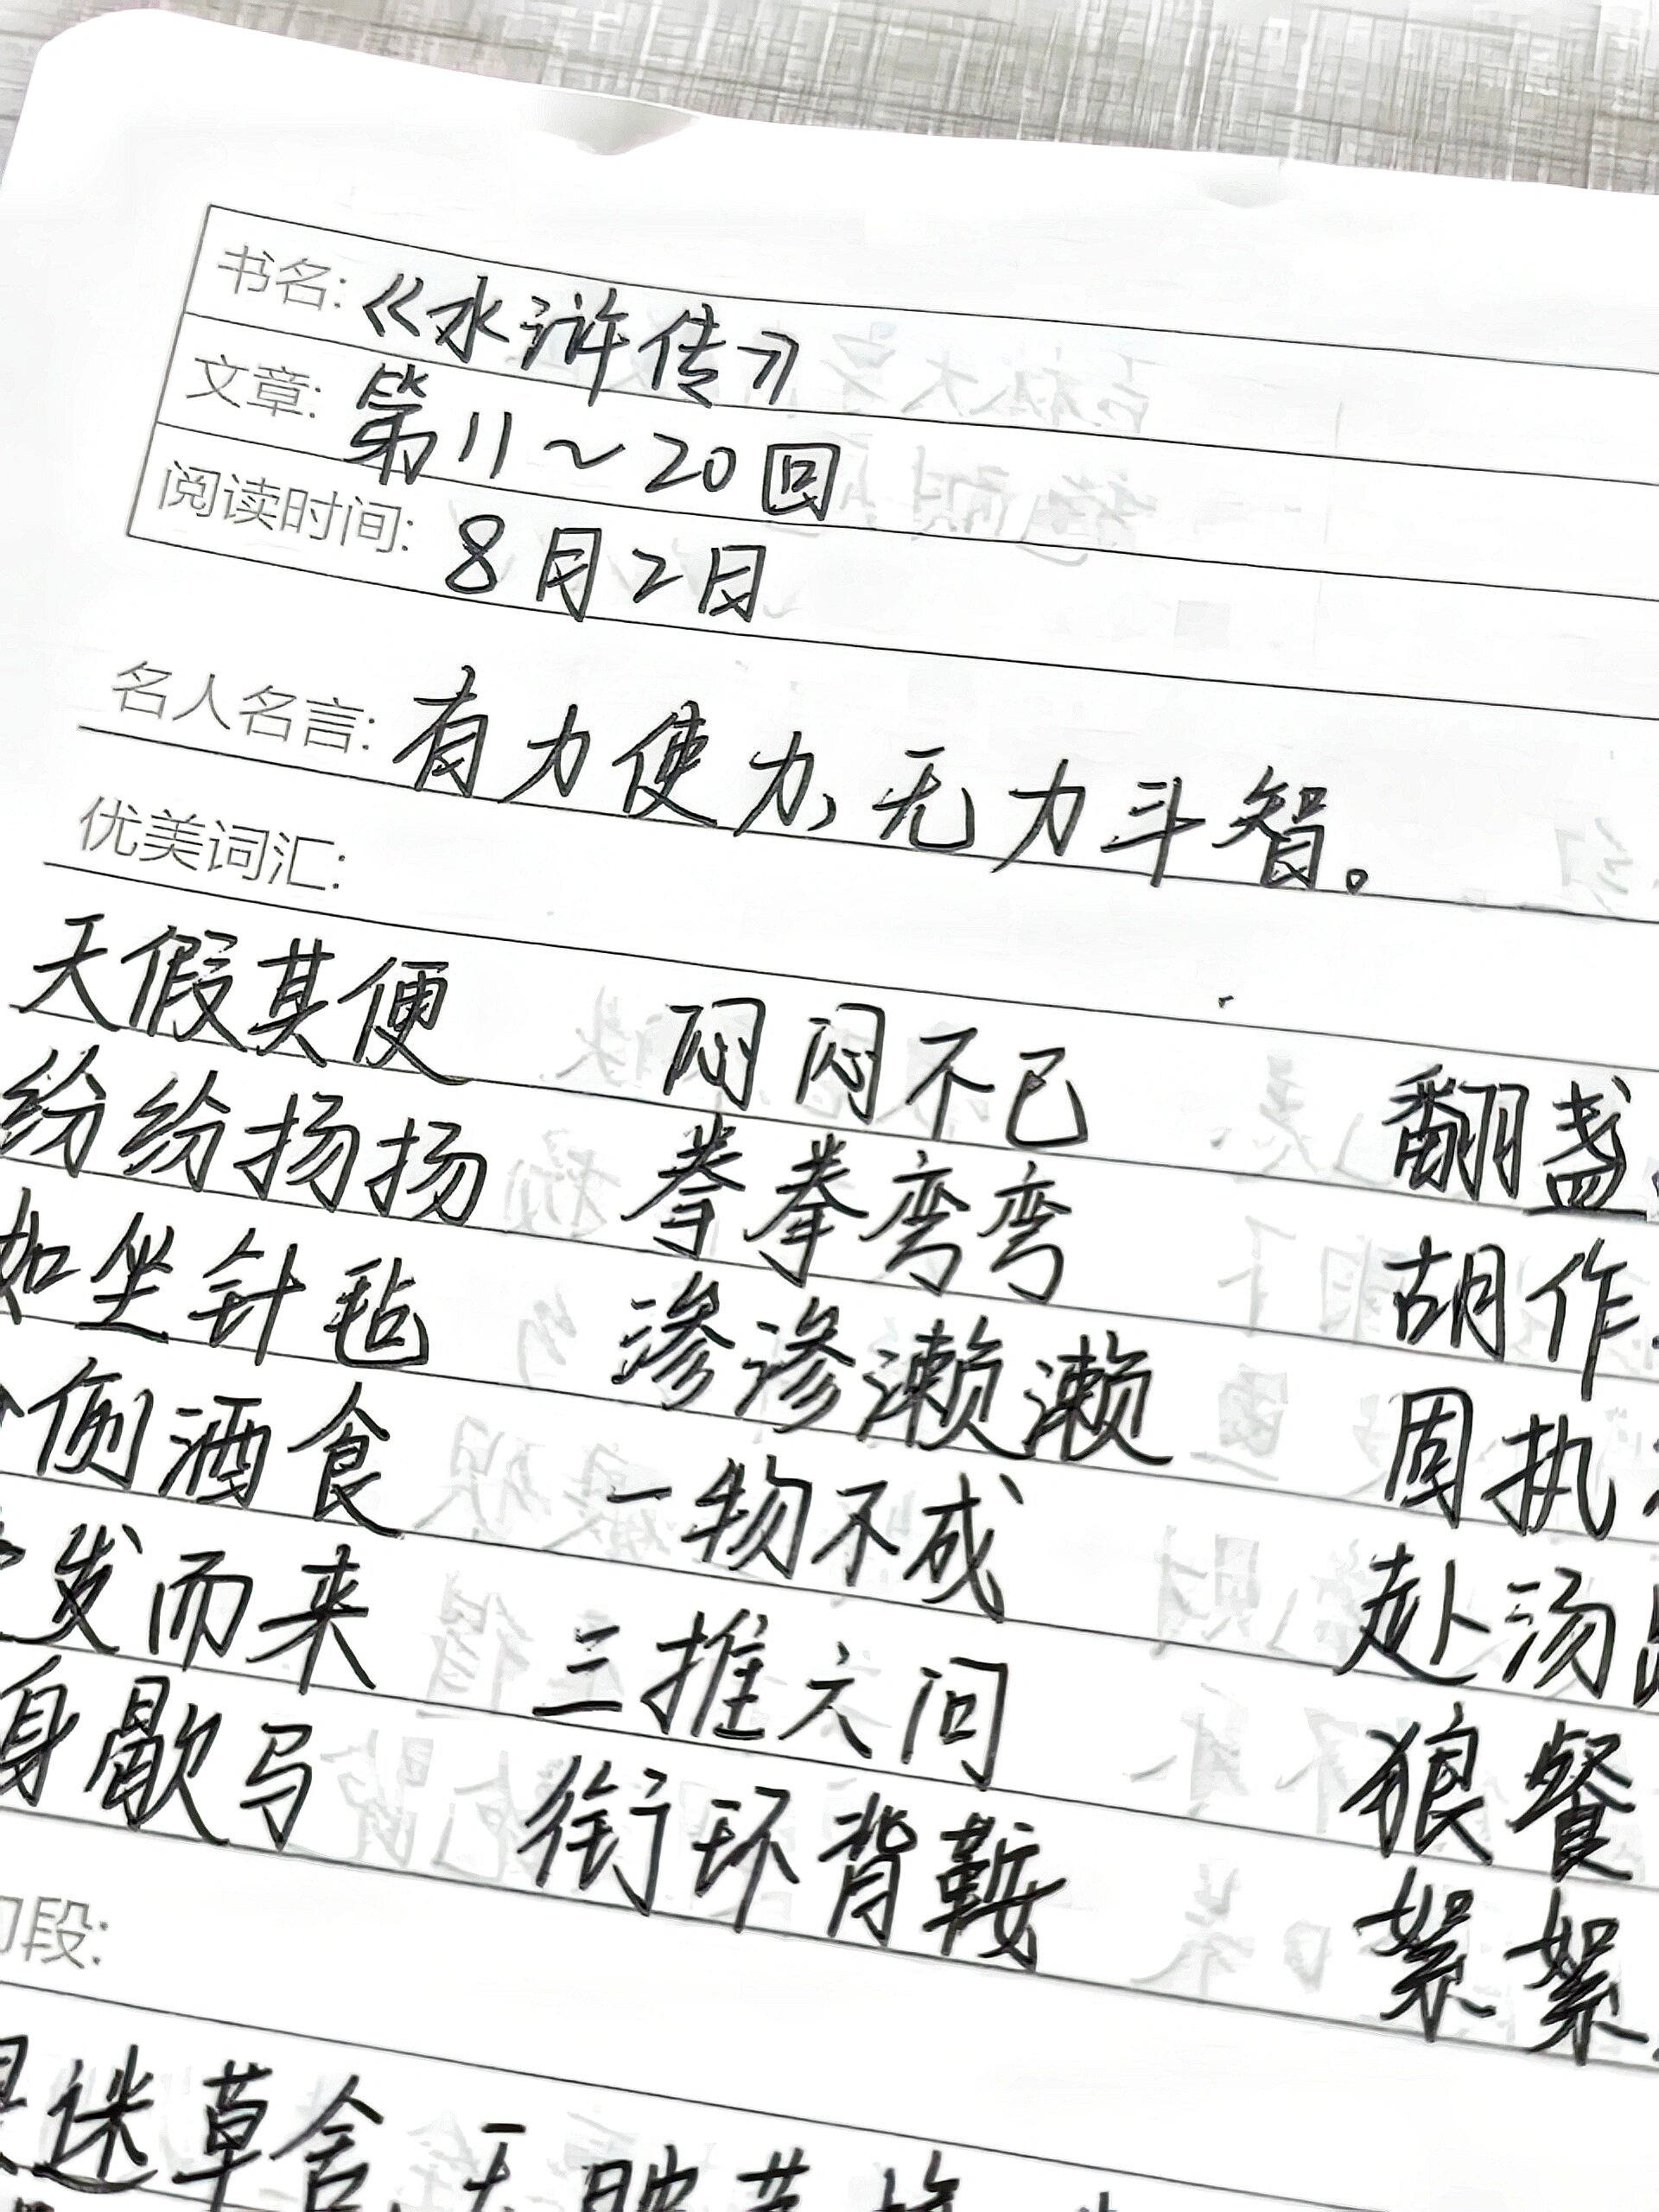 书名: 《水浒传》
文章: 第11~20回
阅读时间: 8月2日
名人名言: 有力使力,无力斗智。
优美词汇:
天假其便 闷闷不已 翻盏
纷纷扬扬 拳拳弯弯 胡作
如坐针毡 渗渗濑濑 固执
侧酒食 一物不成 赴汤
发而来 三推六问 狼餐
身歇马 衔环背鞍 絮絮
段:
迷草舍